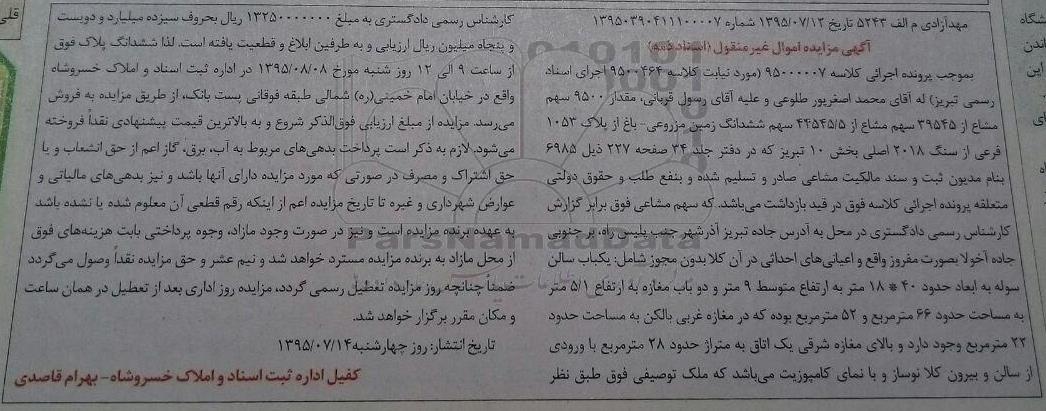 مهدآزادی م الف ۵۲۴۳ تاریخ ۱۳۹۵/۰۷/۱۲ شماره ۱۳۹۵۰۳۹۰۴۱۱۱۰۰۰۰۷
آگهی مزایده اموال غیر منقول (اسناد ذمه)
بموجب پرونده اجرائی کلاسه ۹۵۰۰۰۰۰۷ (مورد نیابت کلاسه ۹۵۰۰۴۶۴ اجرای اسناد
رسمی تبریز) له آقای محمد اصغرپور طلوعی و علیه آقای رسول قربانی، مقدار ۹۵۰۰ سهم
مشاع از ۳۹۵۴۵ سهم مشاع از ۴۴۵۴۵/۵ سهم ششدانگ زمین مزروعی- باغ از پلاک ۱۰۵۳
فرعی از سنگ ۲۰۱۸ اصلی بخش ۱۰ تبریز که در دفتر جلد ۳۴ صفحه ۲۲۷ ذیل ۶۹۸۵
بنام مدیون ثبت و سند مالکیت مشاعی صادر و تسلیم شده و بنفع طلب و حقوق دولتی
متعلقه پرونده اجرائی کلاسه فوق در قید بازداشت می‌باشد. که سهم مشاعی فوق برابر گزارش
کارشناس رسمی دادگستری در محل به آدرس جاده تبریز آذرشهر جنب پلیس راه، بر جنوبی
جاده آخولا بصورت مفروز واقع و اعیانی‌های احداثی در آن کلا بدون مجوز شامل: یکباب سالن
سوله به ابعاد حدود ۴۰ * ۱۸ متر به ارتفاع متوسط ۹ متر و دو باب مغازه به ارتفاع ۵/۱ متر
به مساحت حدود ۶۶ مترمربع و ۵۲ مترمربع بوده که در مغازه غربی بالکن به مساحت حدود
۲۲ مترمربع وجود دارد و بالای مغازه شرقی یک اتاق به متراژ حدود ۲۸ مترمربع با ورودی
از سالن و بیرون کلا نوساز و با نمای کامپوزیت می‌باشد که ملک توصیفی فوق طبق نظر
کارشناس رسمی دادگستری به مبلغ ۱۳۲۵۰۰۰۰۰۰۰ ریال بحروف سیزده میلیارد و دویست
و پنجاه میلیون ریال ارزیابی و به طرفین ابلاغ و قطعیت یافته است. لذا ششدانگ پلاک فوق
از ساعت ۹ الی ۱۲ روز شنبه مورخ ۱۳۹۵/۰۸/۰۸ در اداره ثبت اسناد و املاک خسروشاه
واقع در خیابان امام خمینی(ره) شمالی طبقه فوقانی پست بانک، از طریق مزایده به فروش
می‌رسد. مزایده از مبلغ ارزیابی فوق‌الذکر شروع و به بالاترین قیمت پیشنهادی نقداً فروخته
می‌شود. لازم به ذکر است پرداخت بدهی‌های مربوط به آب، برق، گاز اعم از حق انشعاب و یا
حق اشتراک و مصرف در صورتی که مورد مزایده دارای آنها باشد و نیز بدهی‌های مالیاتی و
عوارض شهرداری و غیره تا تاریخ مزایده اعم از اینکه رقم قطعی آن معلوم شده یا نشده باشد
به عهده برنده مزایده است و نیز در صورت وجود مازاد، وجوه پرداختی بابت هزینه‌های فوق
از محل مازاد به برنده مزایده مسترد خواهد شد و نیم عشر و حق مزایده نقداً وصول می‌گردد
ضمناً چنانچه روز مزایده تعطیل رسمی گردد، مزایده روز اداری بعد از تعطیل در همان ساعت
و مکان مقرر برگزار خواهد شد.
تاریخ انتشار: روز چهارشنبه ۱۳۹۵/۰۷/۱۴
کفیل اداره ثبت اسناد و املاک خسروشاه- بهرام قاصدی
ParsNamadData